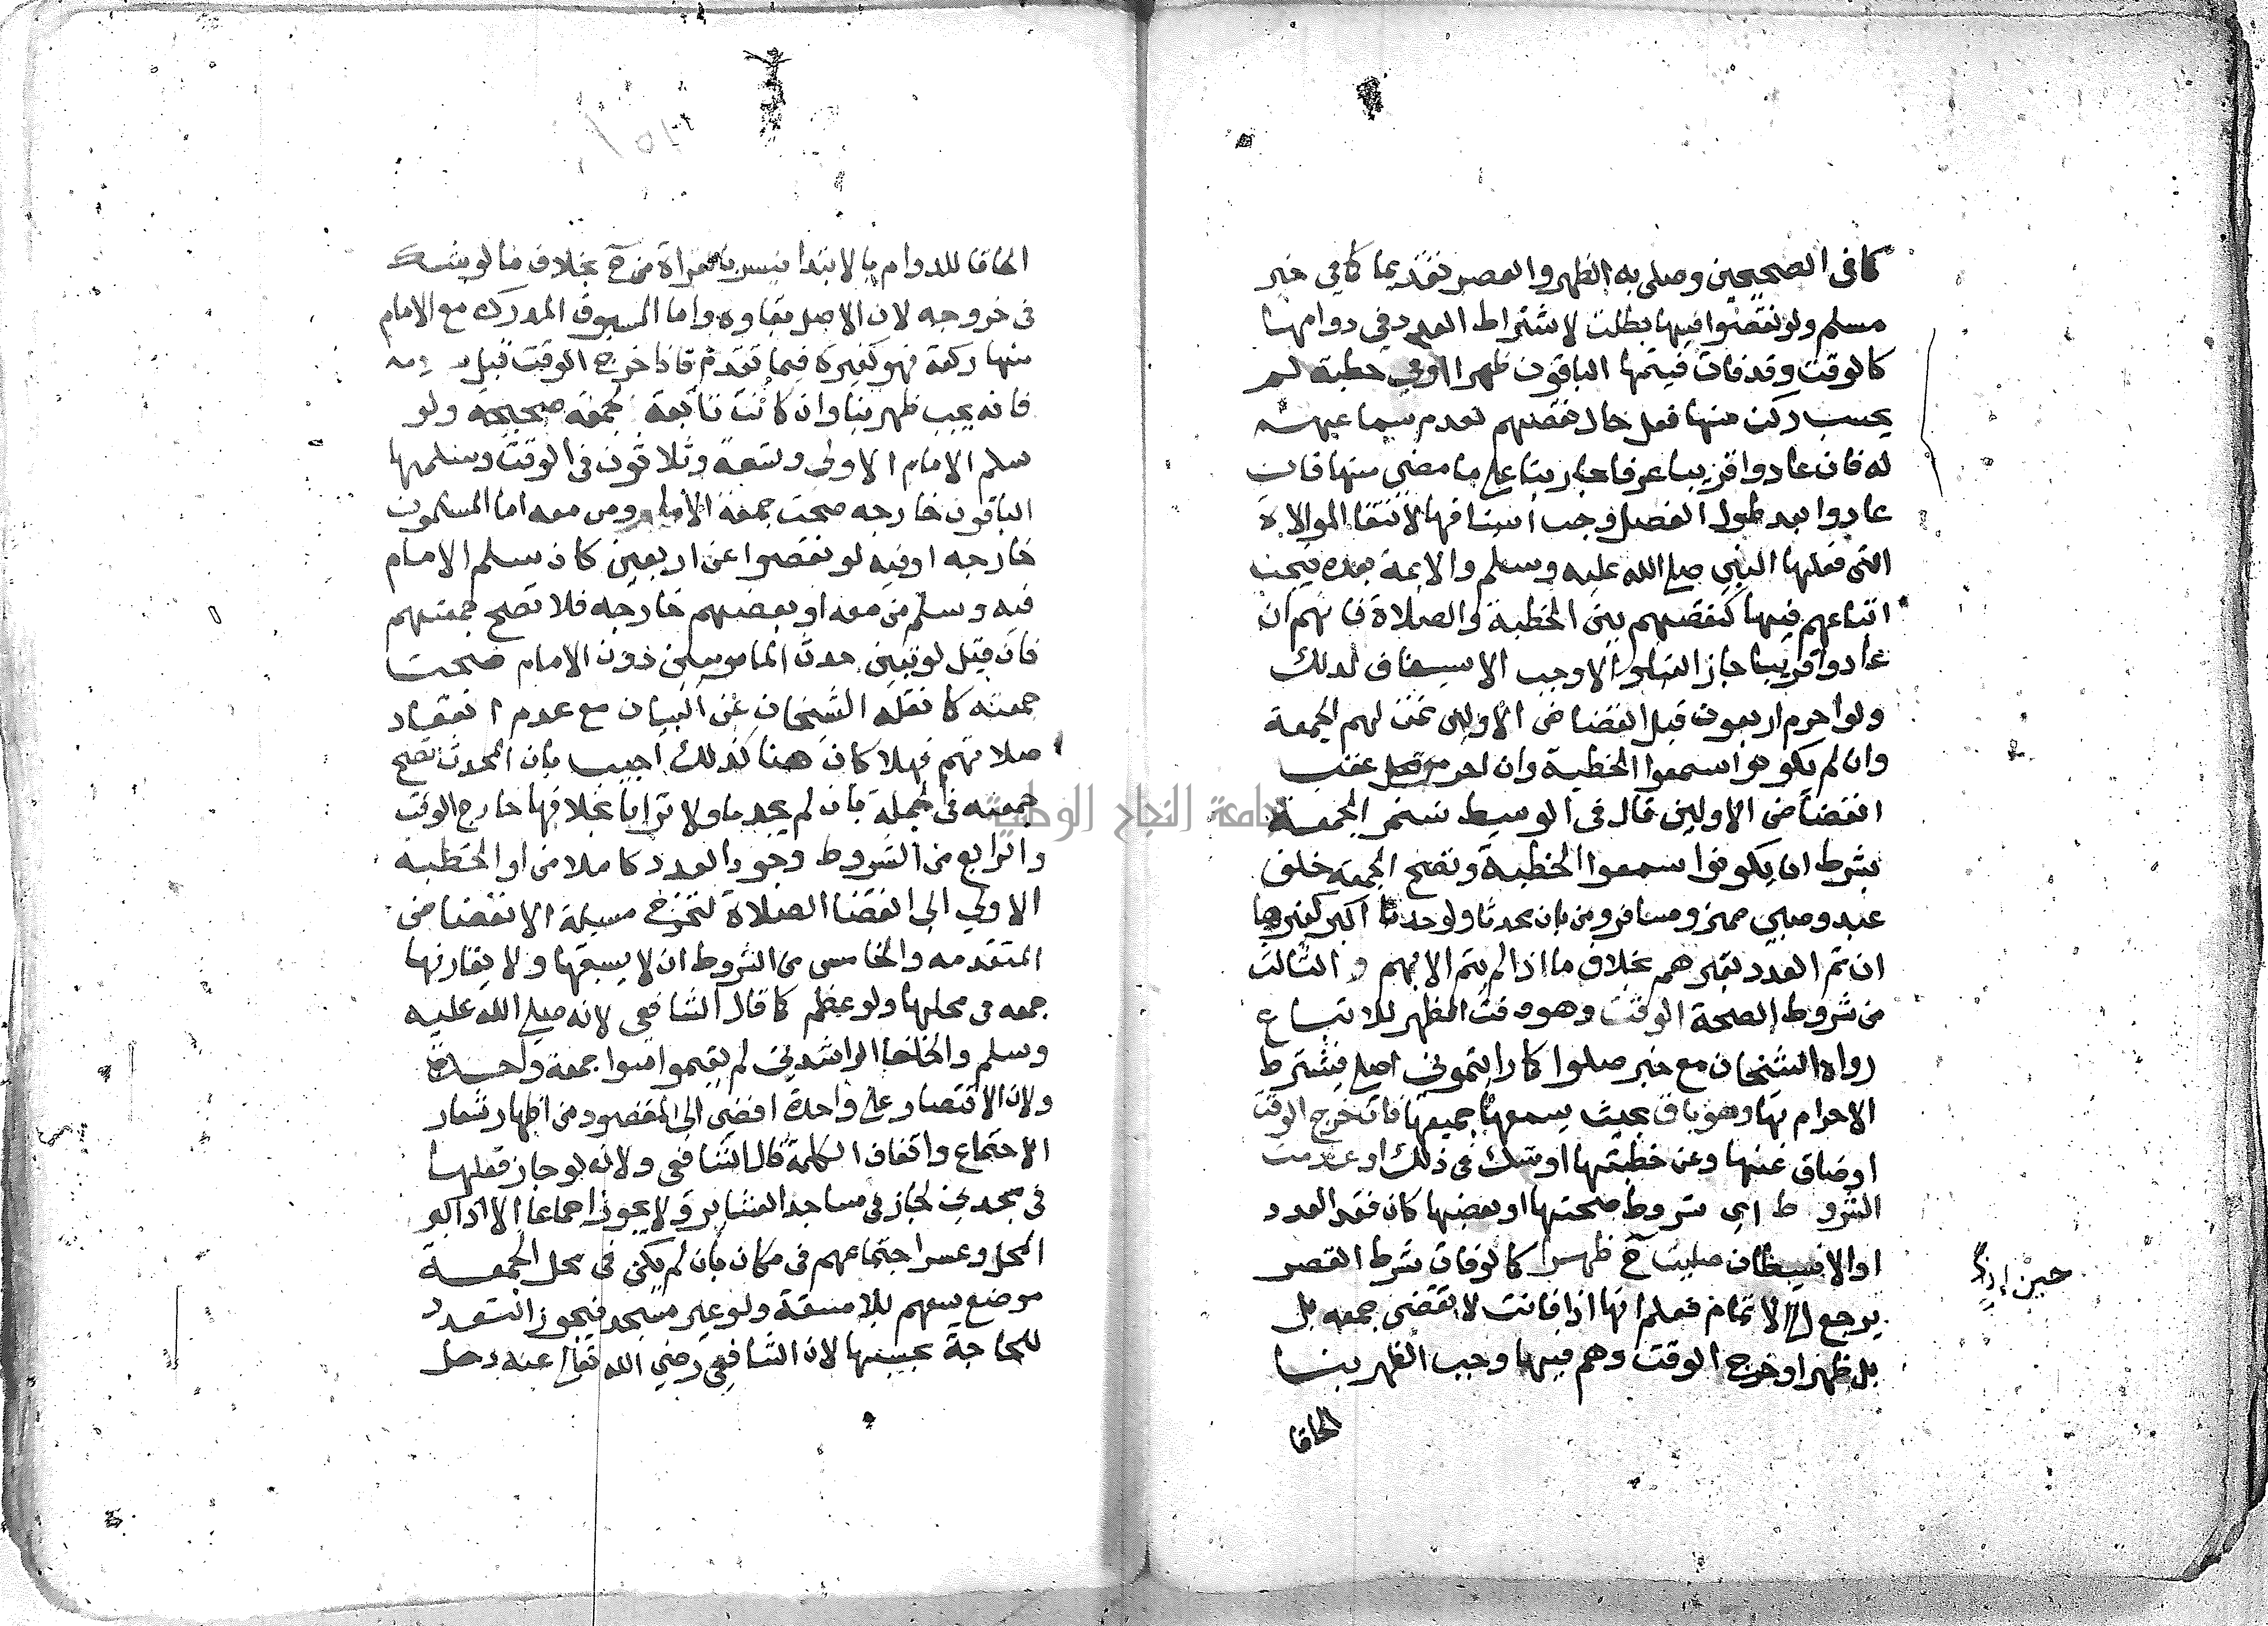 كما في الصحيحين وصلى به الظهر والعصر تقديما كما في خبر
مسلم ولو نقصوا فيها بطلت لاشتراط العدد في دوامها
كالوقت وقد فات فيتمها الباقون ظهرا او في خطبة لم
يحسب ركن منها فعل حال نقصهم لعدم سماعهم
له فان عادوا قريبا عرفا جاز بنا على ما مضى منها فان
عادوا بعد طول الفصل وجب استينافها لانتفا الموالاة
التي فعلها النبي صلى الله عليه وسلم والايمة بعده فيجب
اتباعهم فيها كنقصهم بين الخطبة والصلاة فانهم ان
عادوا قريبا جاز البنا والا وجب الاستيناف لذلك
ولو احرم اربعون قبل انفضاض الاولين تمت لهم الجمعة
وان لم يكونوا سمعوا الخطبة وان احرموا عقب
انفضاض الاولين قال في الوسيط تستمر الجمعة
بشرط ان يكونوا سمعوا الخطبة وتصح الجمعة خلف
عبد وصبي مميز ومسافر ومن بان محدثا ولو حدثا اكبر كغيرها
ان تم العدد بغيرهم بخلاف ما اذا لم يتم الا بهم والثالث
من شروط الصحة الوقت وهو وقت الظهر للاتباع
رواه الشيخان مع خبر صلوا كما رايتموني اصلي فيشترط
الاحرام بها وهو باق بحيث يسعها جميعها فان خرج الوقت
او ضاق عنها وعن خطبتها او شك في ذلك او عدمت
الشروط اي شروط صحتها او بعضها كان فقد العدد
او الاستيطان صليت ح ظهرا كما لو فات شرط القصر
يرجع الى الاتمام فعلم انها اذا فاتت لا تقضى جمعه بل
بل ظهرا او خرج الوقت وهم فيها وجب الظهر بنا
الحاقا
الحاقا للدوام بالابتدا فيسر بالقراة من ح بخلاف ما لو شك
في خروجه لان الاصل بقاوه واما المسبوق المدرك مع الامام
منها ركعة فهو كغيره فيما تقدم فاذا خرج الوقت قبل
فانه يجب ظهر بنا وان كانت تابعة لجمعة صحيحة ولو
سلم الامام الاولى وتسعة وثلاثون في الوقت وسلمها
الباقون خارجه صحت جمعة الامام ومن معه اما المسلمون
خارجه او فيه لو نقصوا عن اربعين كان سلم الامام
فيه وسلم من معه او بعضهم خارجه فلا تصح جمعتهم
فان قيل لو تبين حدث المامومين دون الامام صحت
جمعته كما نقله الشيخان عن البيان مع عدم انعقاد
صلاتهم فهلا كان هنا كذلك اجيب بان المحدث تصح
جمعته في الجملة بان لم يجد ما ولا ترابا بخلافها خارج الوقت
والرابع من الشروط وجود العدد كاملا من اول الخطبة
الاولى الى انقضا الصلاة لتخرج مسيلة الانفضاض
المتقدمه والخامس من الشروط ان لا يسبقها ولا يقارنها
جمعه في محلها ولو عظم كما قال الشافعي لانه صلى الله عليه
وسلم والخلفا الراشدين لم يقيموا سوا جمعة واحدة
ولان الاقتصار على واحدة افضى الى المقصود من اظهار شعار
الاجتماع واتفاق الكلمة قال الشافعي ولانه لو جاز فعلها
في مسجدين لجاز في مساجد العشاير ولا يجوز اجماعا الا اذا كبر
المحل وعسر اجتماعهم في مكان بان لم يكن في محل الجمعة
موضع يسعهم بلا مشقة ولو غير مسجد فيجوز التعدد
للحاجة بحسبها لان الشافعي رضي الله تعالى عنه دخل
جامعة النجاح الوطنية